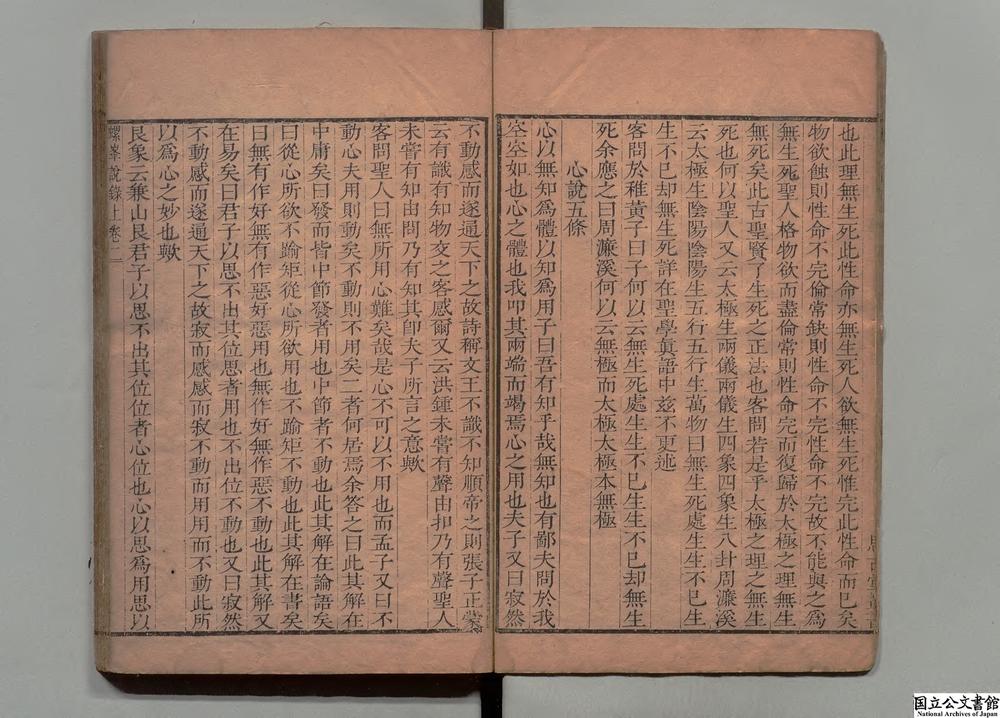 也此理無生死此性命亦無生死人欲無生死惟完此性命而已矣
物欲蝕則性命不完倫常缺則性命不完性命不完故不能與之爲
無生死聖人格物欲而盡倫常則性命完而復歸於太極之理無生
無死矣此古聖賢了生死之正法也客問若是乎太極之理之無生
死也何以聖人又云太極生兩儀兩儀生四象四象生八卦周濂溪
云太極生陰陽陰陽生五行五行生萬物曰無生死處生生不已生
生不已却無生死詳在聖學眞語中玆不更述
客問於稚黃子曰子何以云無生死處生生不已生生不已却無生
死余應之曰周濂溪何以云無極而太極太極本無極
心說五條
心以無知爲體以知爲用子曰吾有知乎哉無知也有鄙夫問於我
空空如也心之體也我叩其兩端而竭焉心之用也夫子又曰寂然
不動感而遂通天下之故詩稱文王不識不知順帝之則張子正蒙
云有識有知物交之客感爾又云洪鍾未嘗有聲由扣乃有聲聖人
未嘗有知由問乃有知其卽夫子所言之意歟
客問聖人曰無所用心難矣哉是心不可以不用也而孟子又曰不
動心夫用則動矣不動則不用矣二者何居焉余答之曰此其解在
中庸矣曰發而皆中節發者用也中節者不動也此其解在論語矣
曰從心所欲不踰矩從心所欲用也不踰矩不動也此其解在書矣
曰無有作好無有作惡好惡用也無作好無作惡不動也此其解又
在易矣曰君子以思不出其位思者用也不出位不動也又曰寂然
不動感而遂通天下之故寂而感感而寂不動而用用而不動此所
以爲心之妙也歟
艮象云兼山艮君子以思不出其位位者心位也心以思爲用思以
螺峯說錄上卷 二
国立公文書館
National Archives of Japan